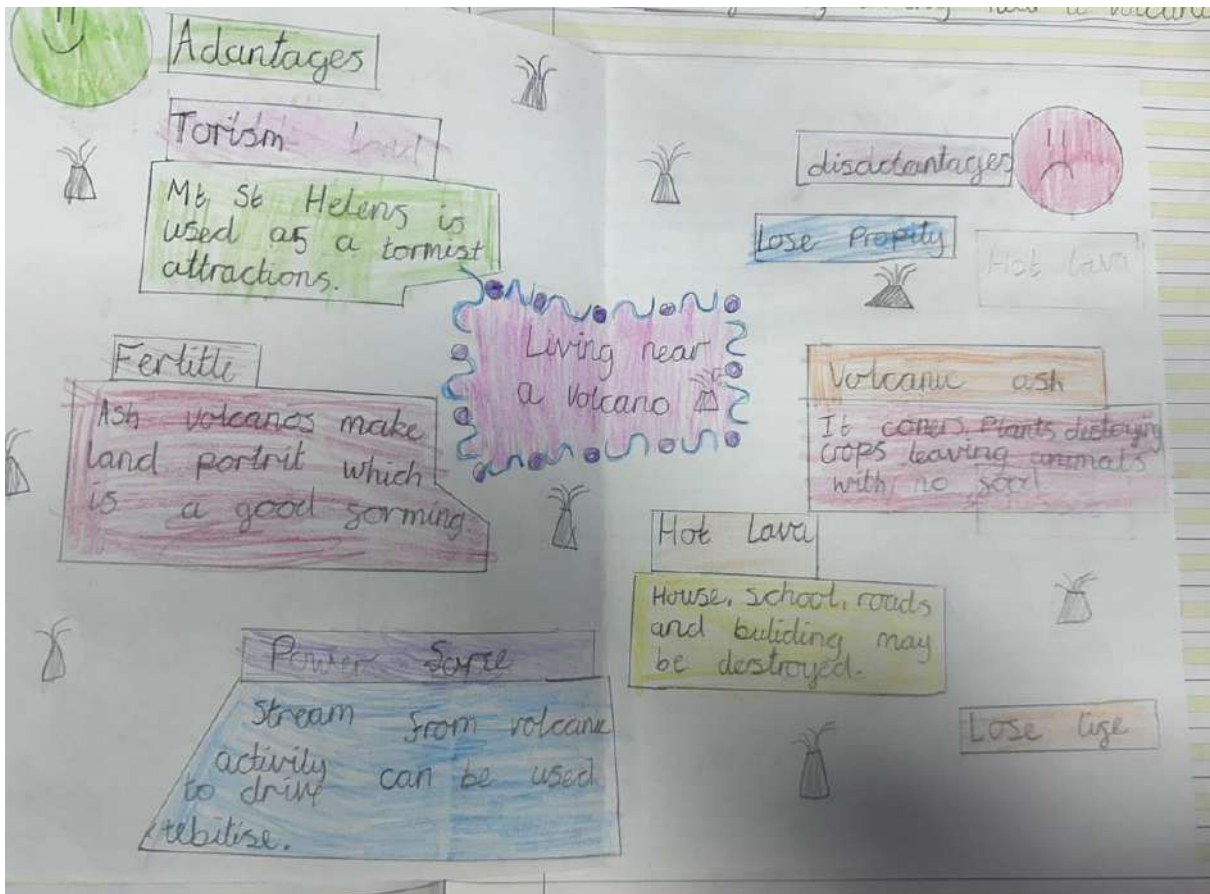 Adantages
Torism Land
Mt St Helens is
used as a tormist
attractions.
Fertitle
Ash volcanos make
land portrit which
is a good forming
Power Sorce
Stream from volcanic
activity can be used
to drive
tebitise.
Living near
a Volcano
disadantages
Lose Propity
Hot Lava
Volcanic ash
It covers Plants destroying
crops leaving animals
with no food
Hot Lava
House, school, roads
and buliding may
be destroyed.
Lose life
a volcano